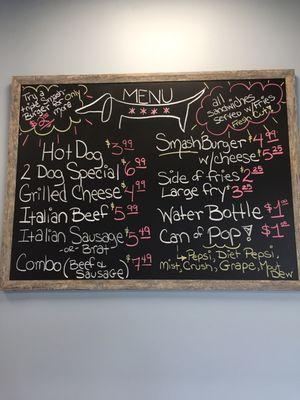 MENU
Try a
triple Smash
Burger for only
more
all
Sandwiches
served w/Fries
Fresh Cut!
Hot Dog $3.99
2 Dog Special $6.99
Grilled Cheese $4.99
Italian Beef $5.99
Italian Sausage $5.49
-or- Brat
Combo (Beef & Sausage) $7.49
Smash Burger $4.99
w/cheese $5.25
Side of fries $2.25
Large fry $3.25
Water Bottle $1.00
Can of Pop! $1.00
Pepsi, Diet Pepsi,
mist, Crush, Grape, Mout
Dew